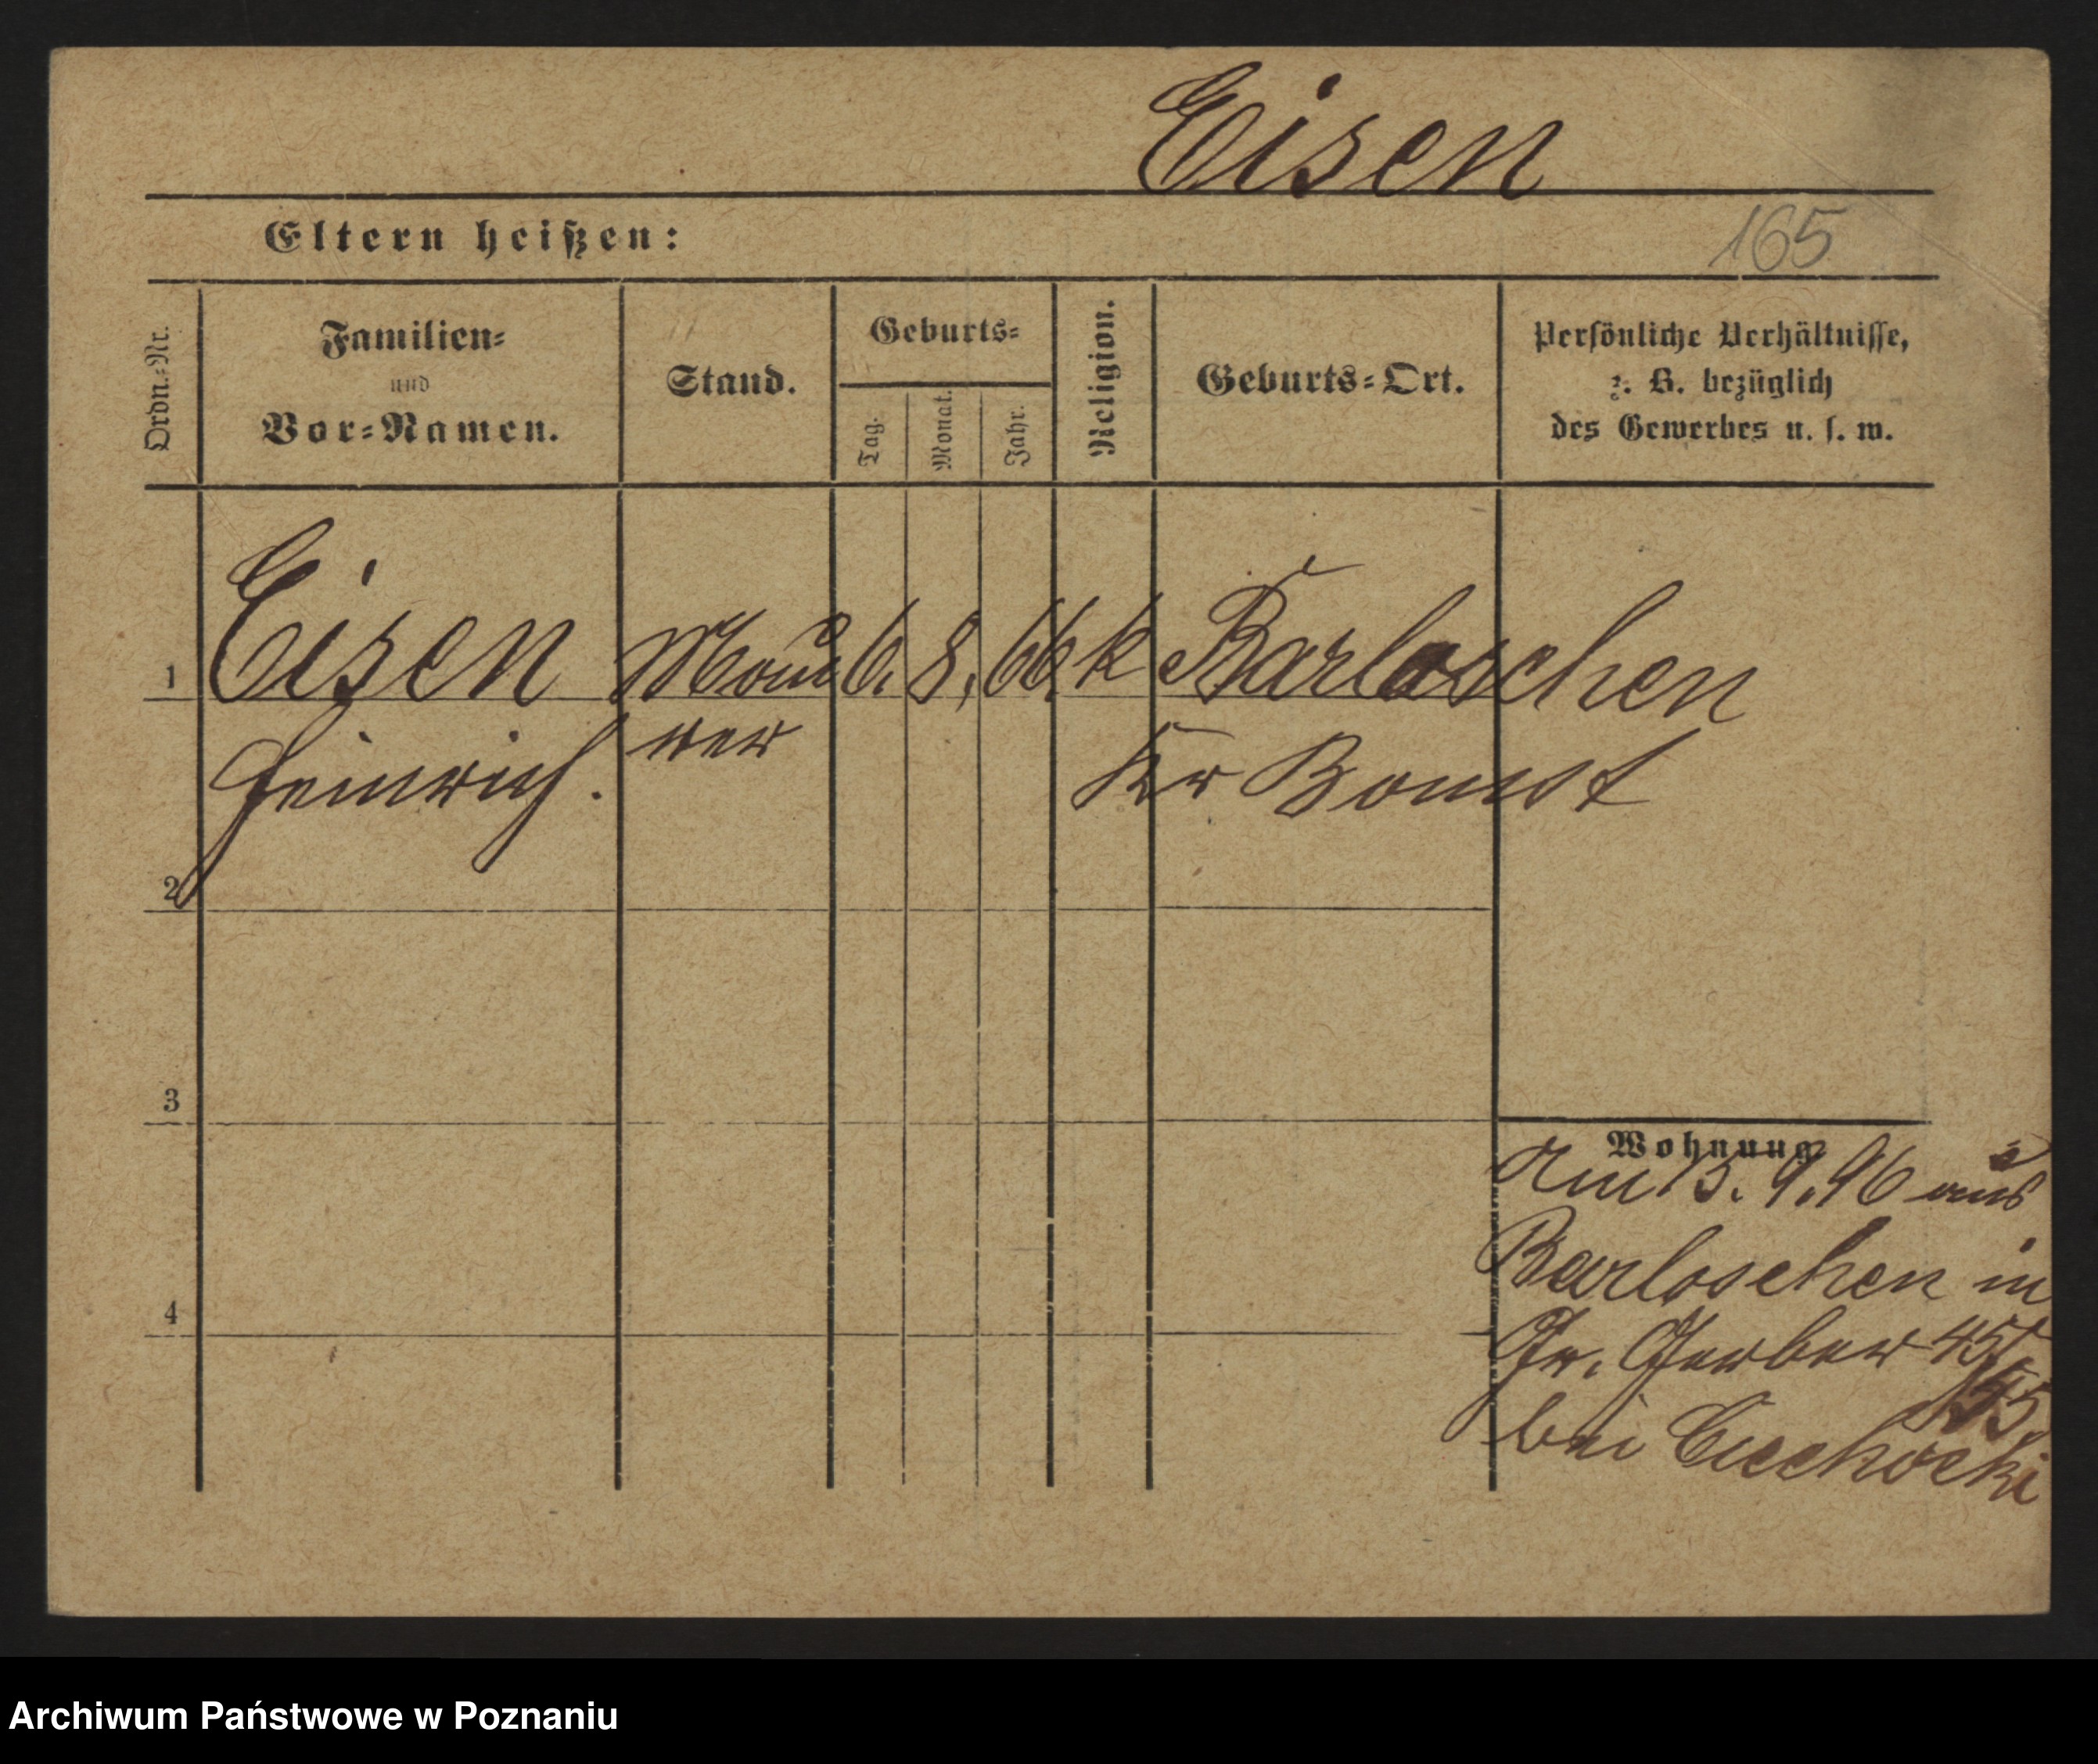 Eisen
Eltern heißen:
165
Ordn.-Nr.
Familien-
und
Vor-Namen.
Stand.
Geburts-
Tag.
Monat.
Jahr.
Religion.
Geburts-Ort.
Persönliche Verhältnisse,
z. B. bezüglich
des Gewerbes u. s. w.
1 Eisen Mau 6. 8. 66. k Barloschen
Heinrich. rer Kr Bomst
2
3
4
Wohnung
Am 13. 9. 96 aus
Barloschen in
Gr. Gerber 45/
bei Ciechocki
Archiwum Państwowe w Poznaniu